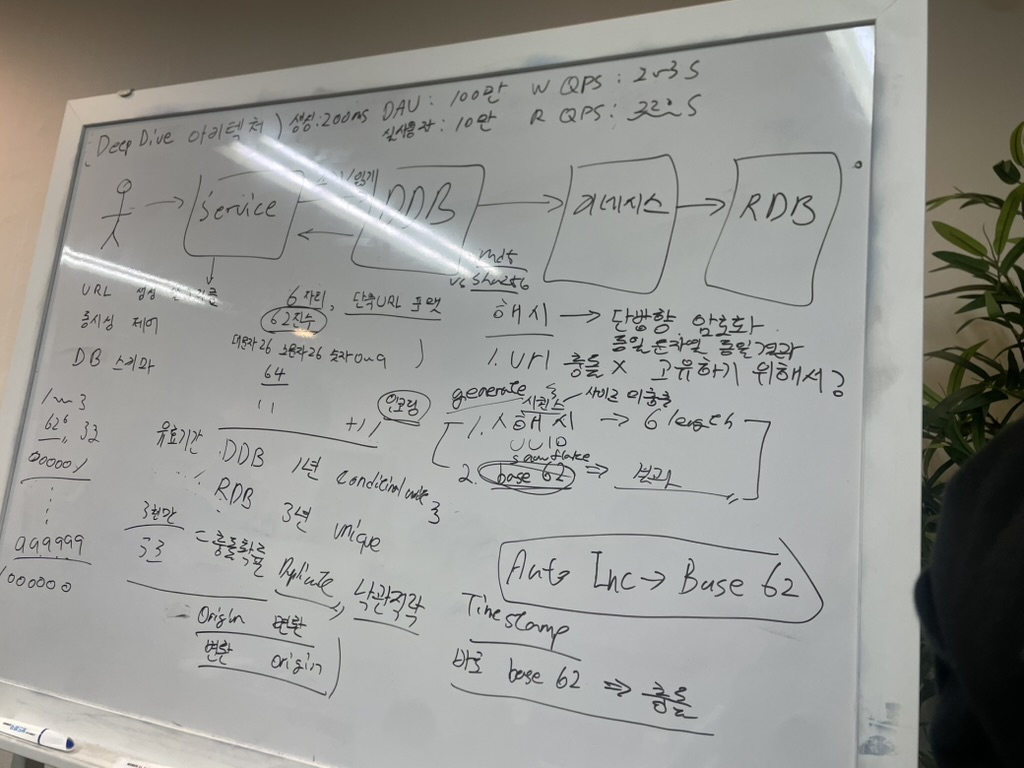 Deep Dive 아키텍처) 생성:200ms DAU: 100만 W QPS: 2~3 S
실사용자: 10만 R QPS: S
Service
DDB
키네시스
RDB
md5
vs Sha256
URL 생성
6자리, 단축URL 포맷
62진수
해시 → 단방향 암호화
동일 문자열 동일 결과
동시성 제어
대문자26 소문자26 숫자 0~9
1. Url 충돌 X 고유하기 위해서
DB 스키마
64
인코딩
generate
시퀀스
1. 해시 → 6 length
UUID
Snowflake
2. base 62 ⇒ 분리
62⁶
000001
유효기간 DDB 1년 Conditional write
RDB 3년 unique
999999
1000000
3년간
= 충돌확률
Duplicate, 낙관적락
Auto Inc → Base 62
Origin 변환
변환 origin
Timestamp
바로 base 62 ⇒ 충돌